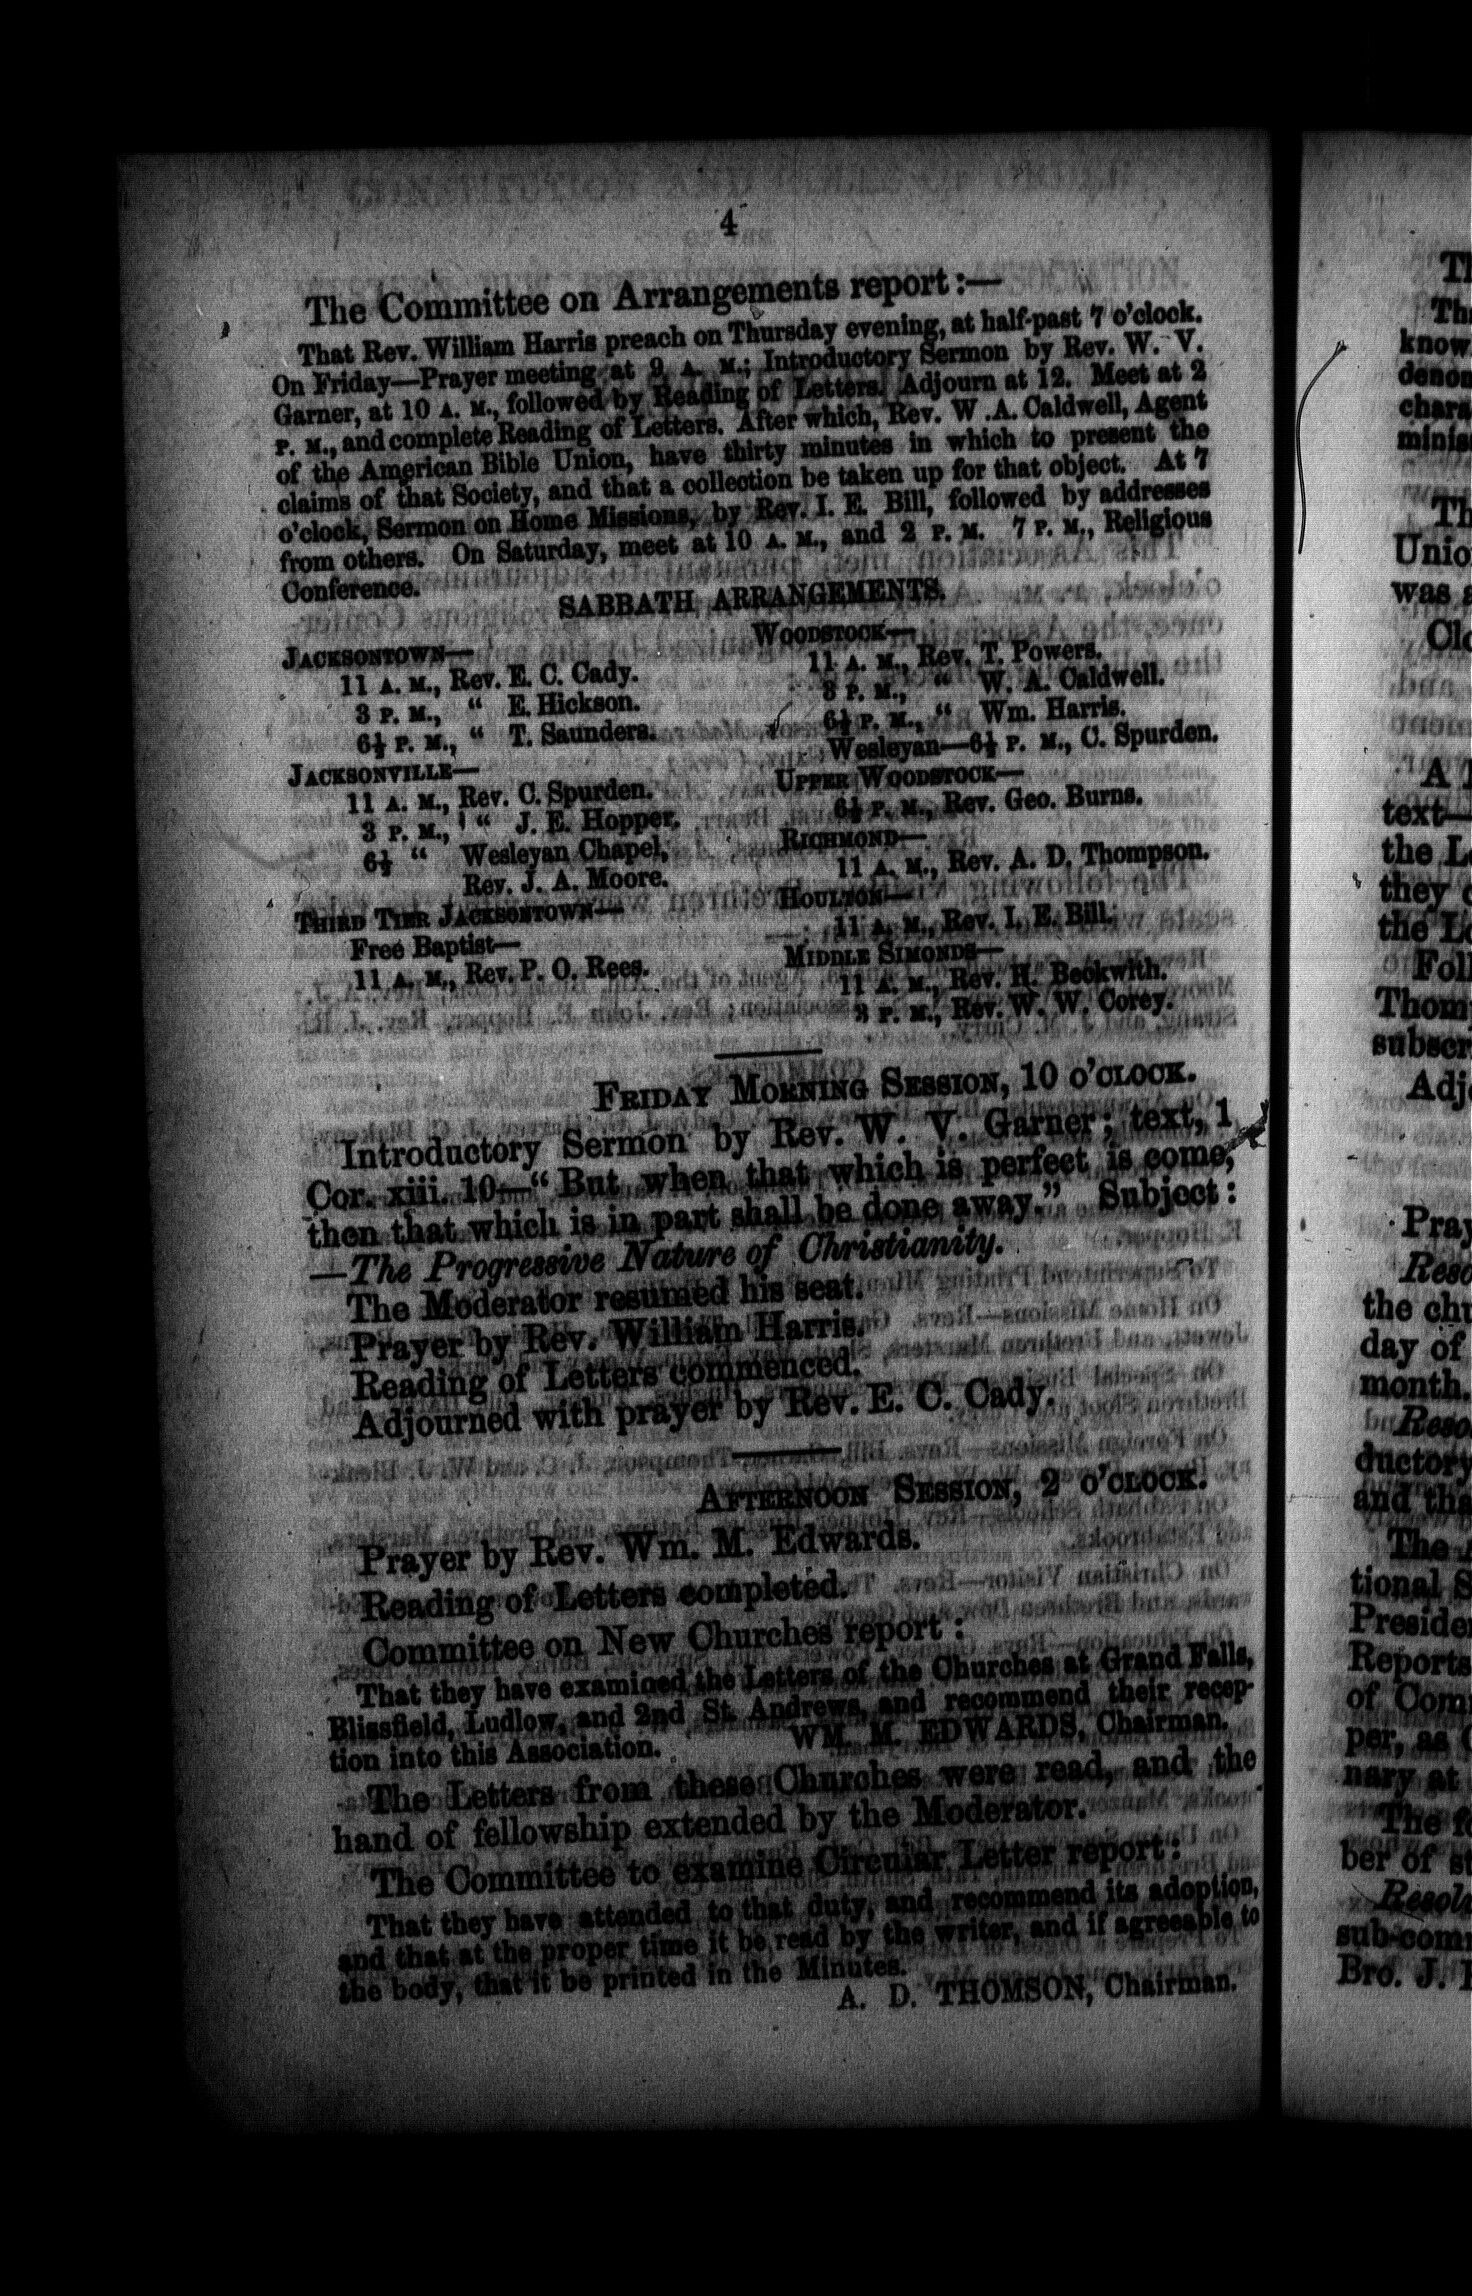 4
The Committee on Arrangements report :—
That Rev. William Harris preach on Thursday evening, at half-past 7 o'clock.
On Friday—Prayer meeting at 9 A. M.; Introductory Sermon by Rev. W. V.
Garner, at 10 A. M., followed by Reading of Letters. Adjourn at 12. Meet at 2
P. M., and complete Reading of Letters. After which, Rev. W .A. Caldwell, Agent
of the American Bible Union, have thirty minutes in which to present the
claims of that Society, and that a collection be taken up for that object. At 7
o'clock, Sermon on Home Missions, by Rev. I. E. Bill, followed by addresses
from others. On Saturday, meet at 10 A. M., and 2 P. M. 7 P. M., Religious
Conference.
SABBATH ARRANGEMENTS.
JACKSONTOWN—
11 A. M., Rev. E. C. Cady.
3 P. M., " E. Hickson.
6½ P. M., " T. Saunders.
JACKSONVILLE—
11 A. M., Rev. C. Spurden.
3 P. M., " J. E. Hopper.
6½ " Wesleyan Chapel,
Rev. J. A. Moore.
THIRD TIER JACKSONTOWN—
Free Baptist—
11 A. M., Rev. P. O. Rees.
WOODSTOCK—
11 A. M., Rev. T. Powers.
3 P. M., " W. A. Caldwell.
6½ P. M., " Wm. Harris.
Wesleyan—6½ P. M., C. Spurden.
UPPER WOODSTOCK—
6½ P. M., Rev. Geo. Burns.
RICHMOND—
11 A. M., Rev. A. D. Thompson.
HOULTON—
11 A. M., Rev. I. E. Bill.
MIDDLE SIMONDS—
11 A. M., Rev. H. Beckwith.
3 P. M., Rev. W. W. Corey.
FRIDAY MORNING SESSION, 10 O'CLOCK.
Introductory Sermon by Rev. W. V. Garner; text, 1
Cor. xiii. 10—" But when that which is perfect is come,
then that which is in part shall be done away." Subject :
—The Progressive Nature of Christianity.
The Moderator resumed his seat.
Prayer by Rev. William Harris.
Reading of Letters commenced.
Adjourned with prayer by Rev. E. C. Cady.
AFTERNOON SESSION, 2 O'CLOCK.
Prayer by Rev. Wm. M. Edwards.
Reading of Letters completed.
Committee on New Churches report :
That they have examined the Letters of the Churches at Grand Falls,
Blissfield, Ludlow, and 2nd St. Andrews, and recommend their recep-
tion into this Association. WM. M. EDWARDS, Chairman.
The Letters from these Churches were read, and the
hand of fellowship extended by the Moderator.
The Committee to examine Circular Letter report :
That they have attended to that duty, and recommend its adoption,
and that at the proper time it be read by the writer, and if agreeable to
the body, that it be printed in the Minutes.
A. D. THOMSON, Chairman.